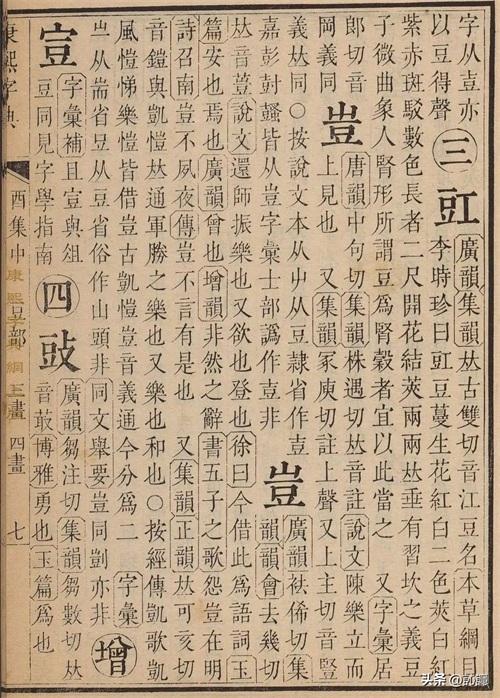 字从壴亦
以豆得聲
三
豇
廣韻集韻𠀤古雙切音江豆名本草綱目
李時珍曰豇豆蔓生花紅白二色莢白紅
紫赤斑駁數色長者二尺開花結莢兩兩𠀤垂有習坎之義豆
子微曲象人腎形所謂豆爲腎穀者宜以此當之 又字彙居
郎切音
岡義同
壴
唐韻中句切集韻株遇切𠀤音註說文陳樂立而
上見也 又集韻冢庾切註上聲 又上主切音豎
義𠀤同○按說文本从屮从豆隸省作壴
嘉彭尌鼖皆从壴字彙士部譌作壴非
豈
廣韻袪俙切集
韻韻會去幾切
𠀤音說文還師振樂也又欲也登也徐曰今借此爲語詞玉
篇安也焉也廣韻曾也增韻非然之辭書五子之歌怨豈在明
詩召南豈不夙夜傳豈不言有是也 又集韻正韻𠀤可亥切
音鎧與凱愷𠀤通軍勝之樂也又樂也和也○按經傳凱歌凱
風愷悌樂愷皆借豈古凱愷豈音義通今分爲二 字彙
从耑省从豆省俗作山頭非同文舉要豈同剴亦非
增
字彙補且與俎
豆同見字學指南
四
廣韻芻注切集韻芻數切𠀤
音菆博雅勇也玉篇爲也
康熙字典
酉集中 豆部 三畫 四畫
七